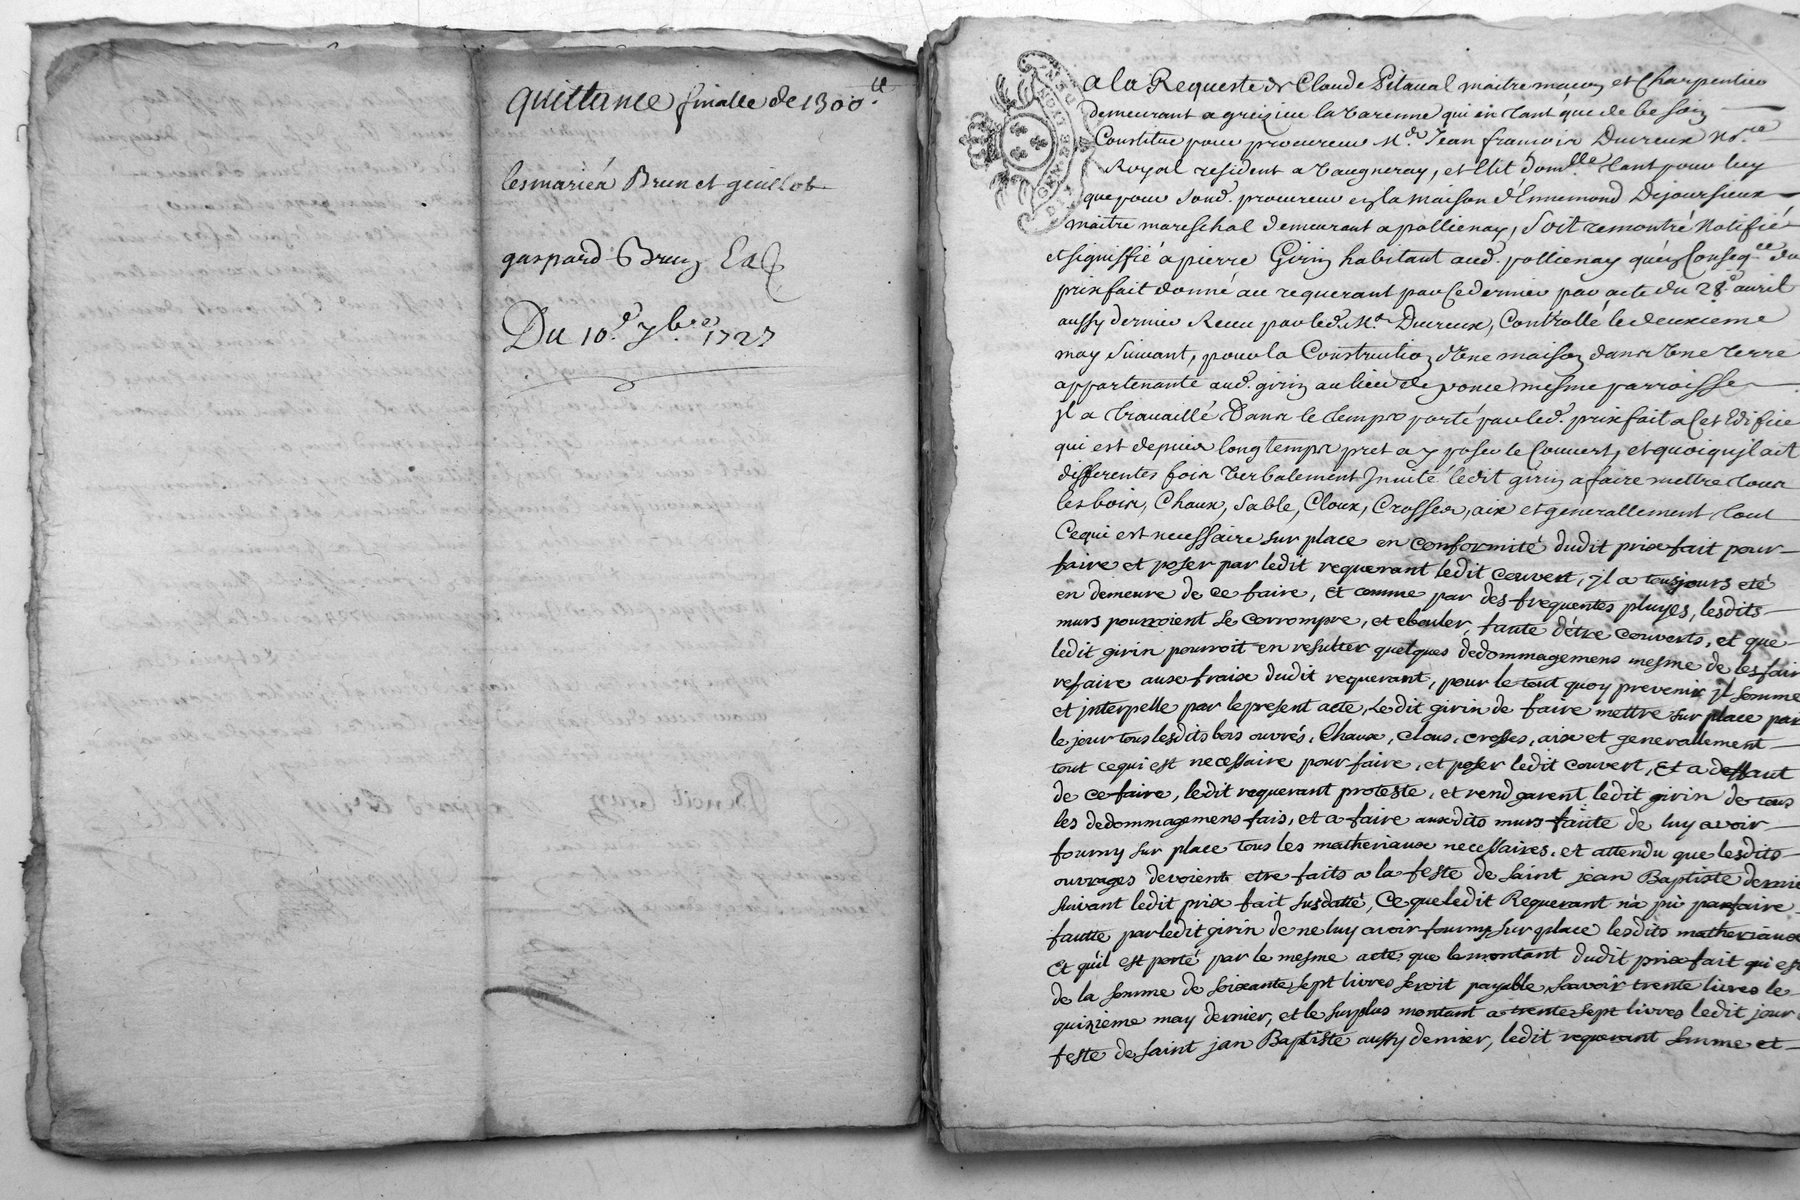 quittance finalle de 1300.lt
les mariés Brun et guillot
gaspard Brun
Du 10.e 7bre 1727
GENERALITE DE LYON
a la Requeste de Claude Pitaval maitre macon et Charpentier
demeurant a greizieu la varenne qui en tant que de besoin
Constitue pour procureur Me. Jean francois Ducreux Nore
Royal resident a Vaugneray, et Elit domlle tant pour luy
que pour sond. procureur en la maison d'Ennemond Dejoursieux
maitre mareschal demeurant a pollienay, soit remontré Notifié
et signiffié a pierre Girin habitant aud. pollienay qu'en Conseqce du
prixfait donné au requerant par ce dernier par acte du 28e. avril
aussy dernier Receu par led. Me Ducreux, Controllé le deuxieme
may suivant, pour la Construction d'Une maison dans Une terre
appartenante aud. girin au lieu de ponce mesme parroisse
jl a travaillé dans le temps porté par led. prixfait a Cet Edifice
qui est depuis longtemps pret a y poser le Couvert, et quoiqu'jl ait
differentes fois verbalement Jnvité ledit girin a faire mettre tous
les bois, Chaux, Sable, Cloux, Crosses, aix et generallement tout
Ce qui est necessaire sur place en conformité dudit prixfait pour
faire et poser par ledit requerant ledit couvert, jl a tousjours eté
en demeure de ce faire, et comme par des frequentes pluyes, lesdits
murs pourroient se corrompre, et ebouler, faute d'être couverts, et que
ledit girin pourroit en resulter quelques dedommagemens mesme de les fair
refaire aux fraix dudit requerant, pour le tout quoy prevenir jl somme
et jnterpelle par le present acte, Ledit girin de faire mettre sur place par
le jour tous lesdits bois ouvrés, Chaux, clous, crosses, aix et generallement
tout ce qui est necessaire pour faire, et poser ledit couvert, Et a deffaut
de ce faire, ledit requerant proteste, et rend garent ledit girin de tous
les dedommagemens fais, et a faire auxdits murs faute de luy avoir
fourny sur place tous les matheriaux necessaires, et attendu que lesdits
ouvrages devoient etre faits a la feste de saint jean Baptiste dernie
suivant ledit prix fait susdatté, Ce que ledit Requerant n'a pû parfaire
fautte par ledit girin de ne luy avoir fourny sur place lesdits matheriaux
Et qu'il est porté par le mesme acte que le montant dudit prixfait qui est
de la somme de soixante sept livres seroit payable, scavoir trente livres le
quinzieme may dernier, et le surplus montant a trente sept livres ledit jour
feste de saint jan Baptiste aussy dernier, ledit requerant somme et